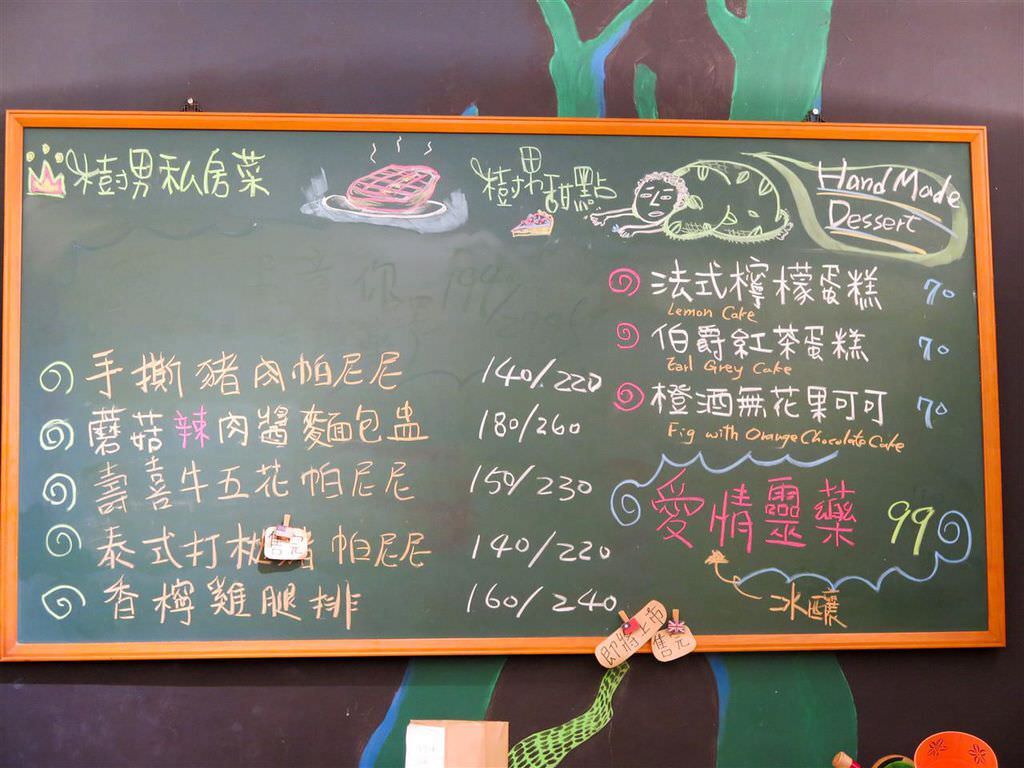 樹男私房菜
手撕豬肉帕尼尼 140/220
蘑菇辣肉醬麵包盅 180/260
壽喜牛五花帕尼尼 150/230
泰式打拋豬帕尼尼 140/220
售完
香檸雞腿排 160/240
樹男甜點
Hand Made
Dessert
法式檸檬蛋糕 70
Lemon Cake
伯爵紅茶蛋糕 70
Earl Grey Cake
橙酒無花果可可 70
Fig with Orange Chocolate Cake
愛情靈藥 99
冰釀
即將上市
售完